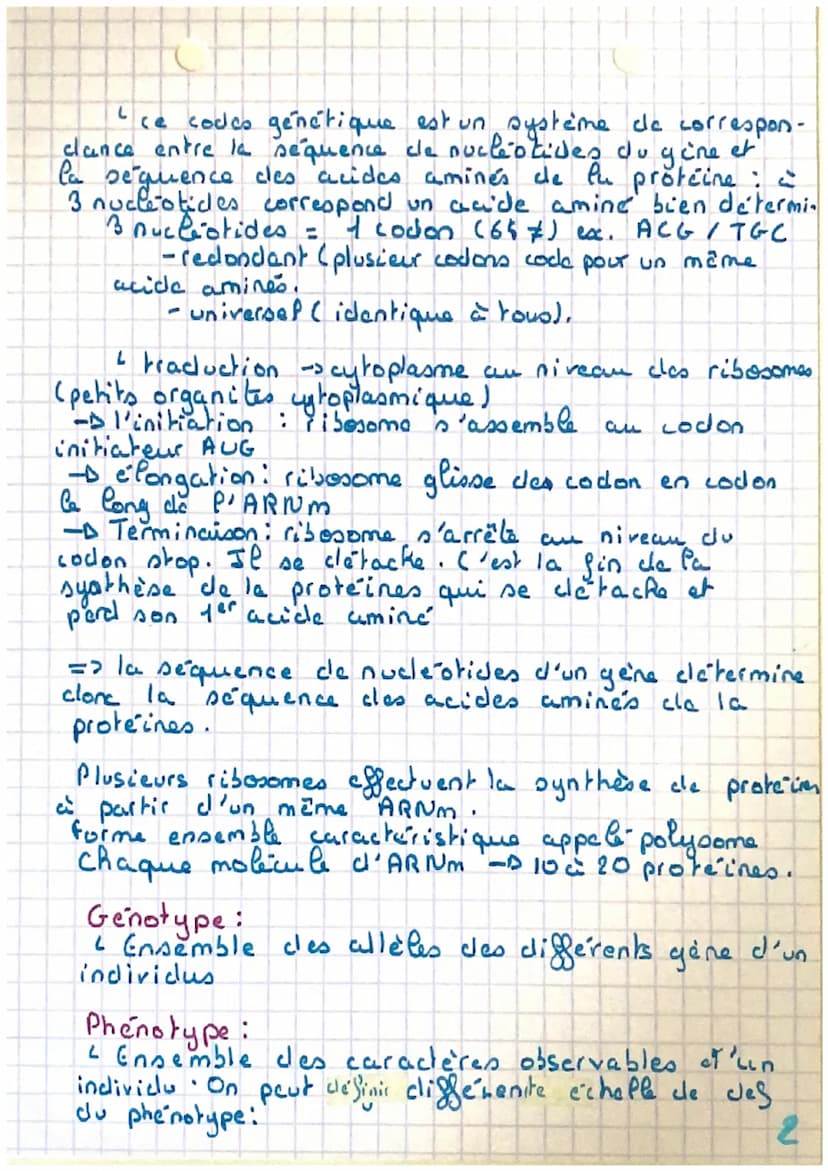 ↳ ce codes génétique est un système de correspon-
dance entre la séquence de nucléotides du gène et
la séquence des acides aminés de la protéine : à
3 nucléotides correspond un acide aminé bien détermi-
3 nucléotides = 1 codon (64 ≠) ex. ACG / TGC
- redondant (plusieur codons code pour un même
acide aminés.
- universel (identique à tous).
↳ traduction → cytoplasme au niveau des ribosomes
(petits organites cytoplasmique)
→ l'initiation : ribosome s'assemble au codon
initiateur AUG
→ élongation : ribosome glisse des codon en codon
le long de l'ARNm
→ Terminaison : ribosome s'arrête au niveau du
codon stop. Il se détache. C'est la fin de la
systhèse de la protéines qui se détache et
perd son 1er acide aminé
=> la séquence de nucléotides d'un gène détermine
donc la séquence des acides aminés de la
protéines.
Plusieurs ribosomes effectuent la synthèse de protéines
à partir d'un même ARNm.
forme ensemble caractéristique appelé polysome
Chaque molécule d'ARNm → 10 à 20 protéines.
Génotype :
↳ Ensemble des allèles des différents gène d'un
individus
Phénotype :
↳ Ensemble des caractères observables d'un
individu. On peut définir différente échelle de des
du phénotype :
2